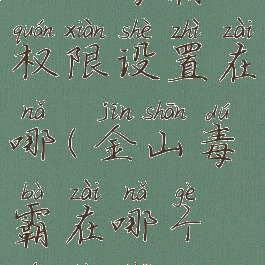 quán xiàn shè zhì zài
权限设置在
nǎ jīn shān dú
哪(金山毒
bà zài nǎ gè
霸在哪个